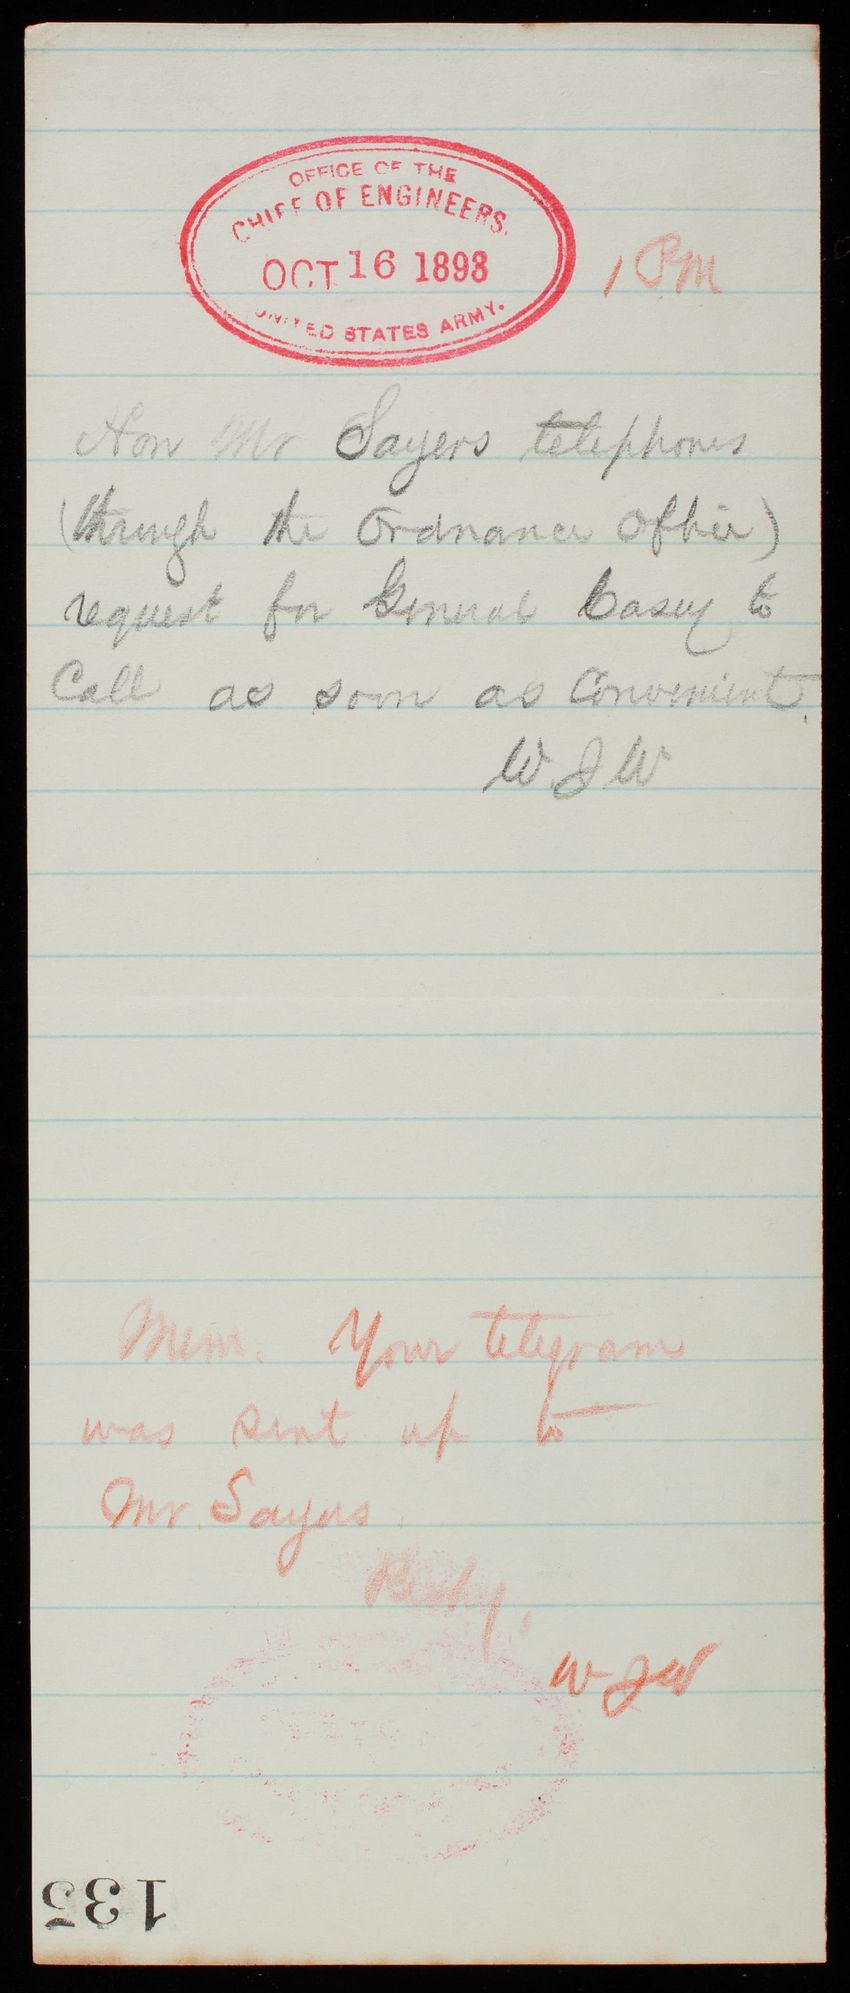 OFFICE OF THE
CHIEF OF ENGINEERS.
OCT 16 1893
UNITED STATES ARMY.
1 PM
Hon Mr Sayers telephones
(through the Ordnance Office)
request for General Casey to
Call as soon as Convenient.
W.J.W
Mem. Your telegram
was sent up to
Mr. Sayers.
W J W
135